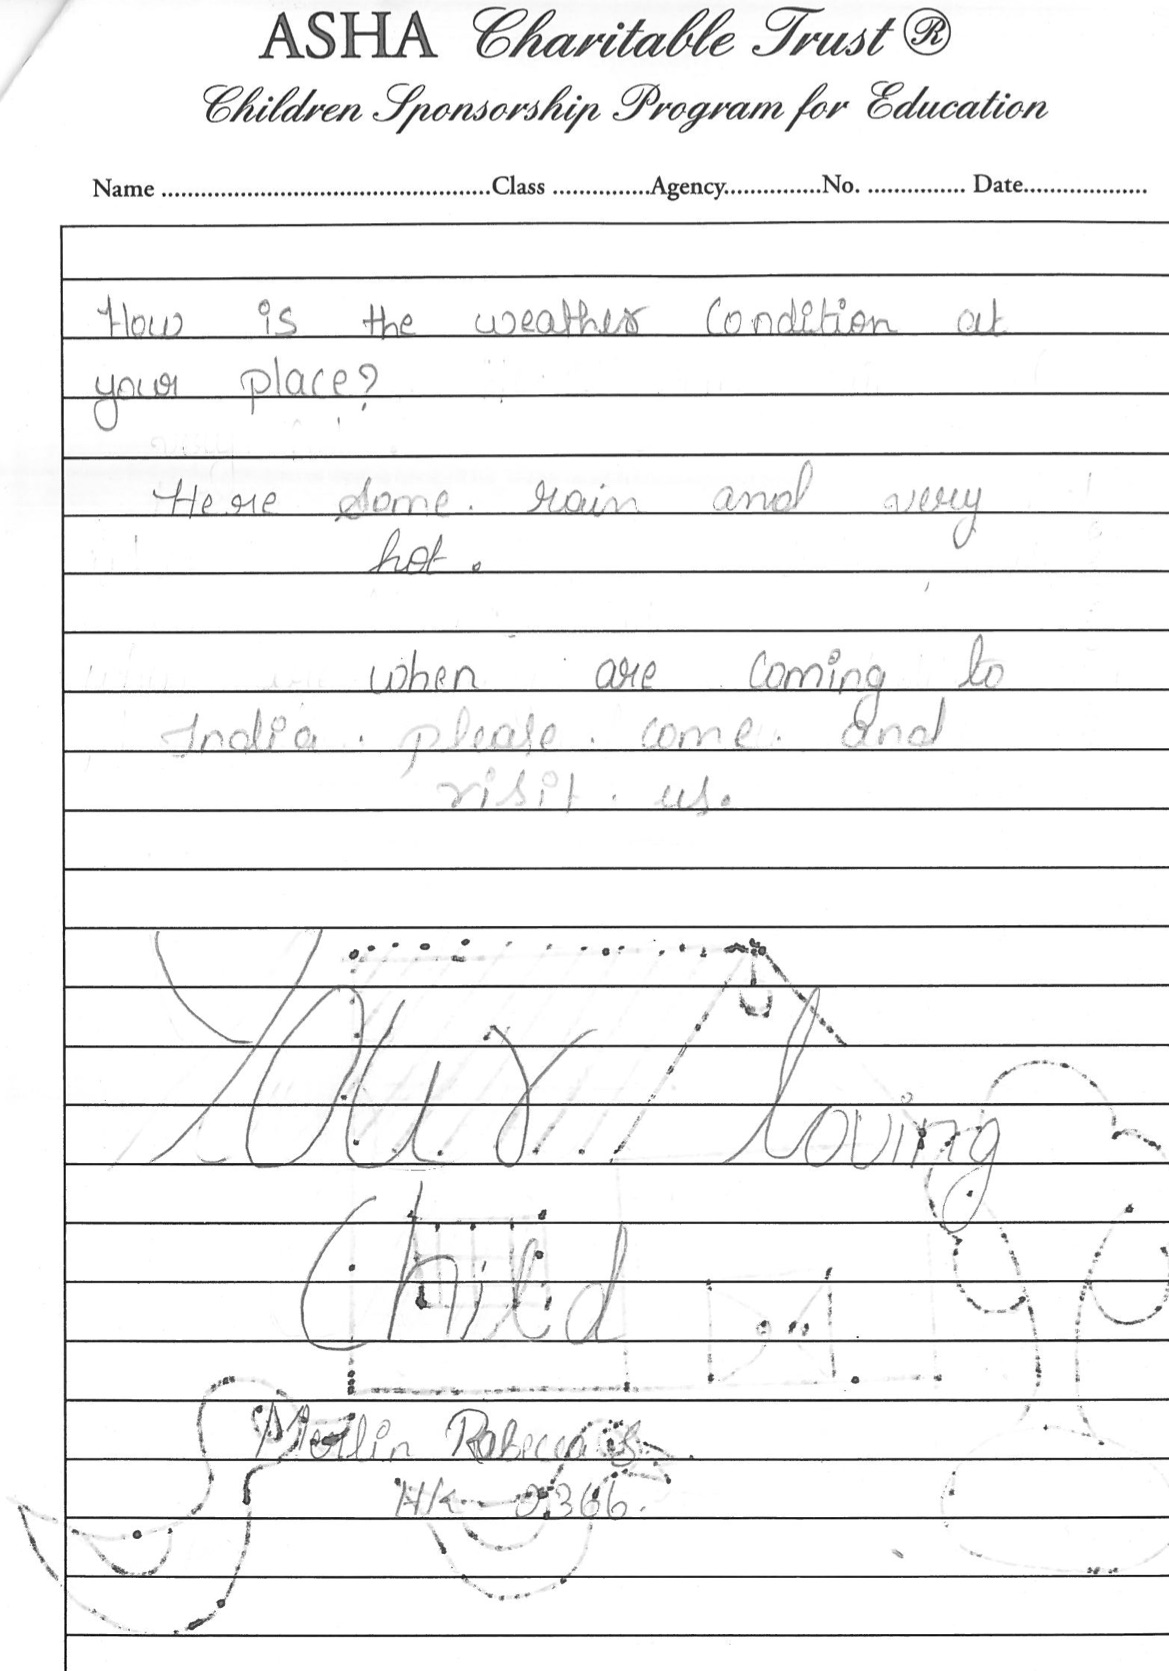 ASHA Charitable Trust ®
Children Sponsorship Program for Education
Name .................................................Class ...............Agency...............No. ............... Date...................
How is the weather Condition at
your place?
Here some. rain and very
hot.
when are coming to
India. please. come. and
visit. us.
Your loving
Child
Merlin Rebecca S.
HK - 0366.